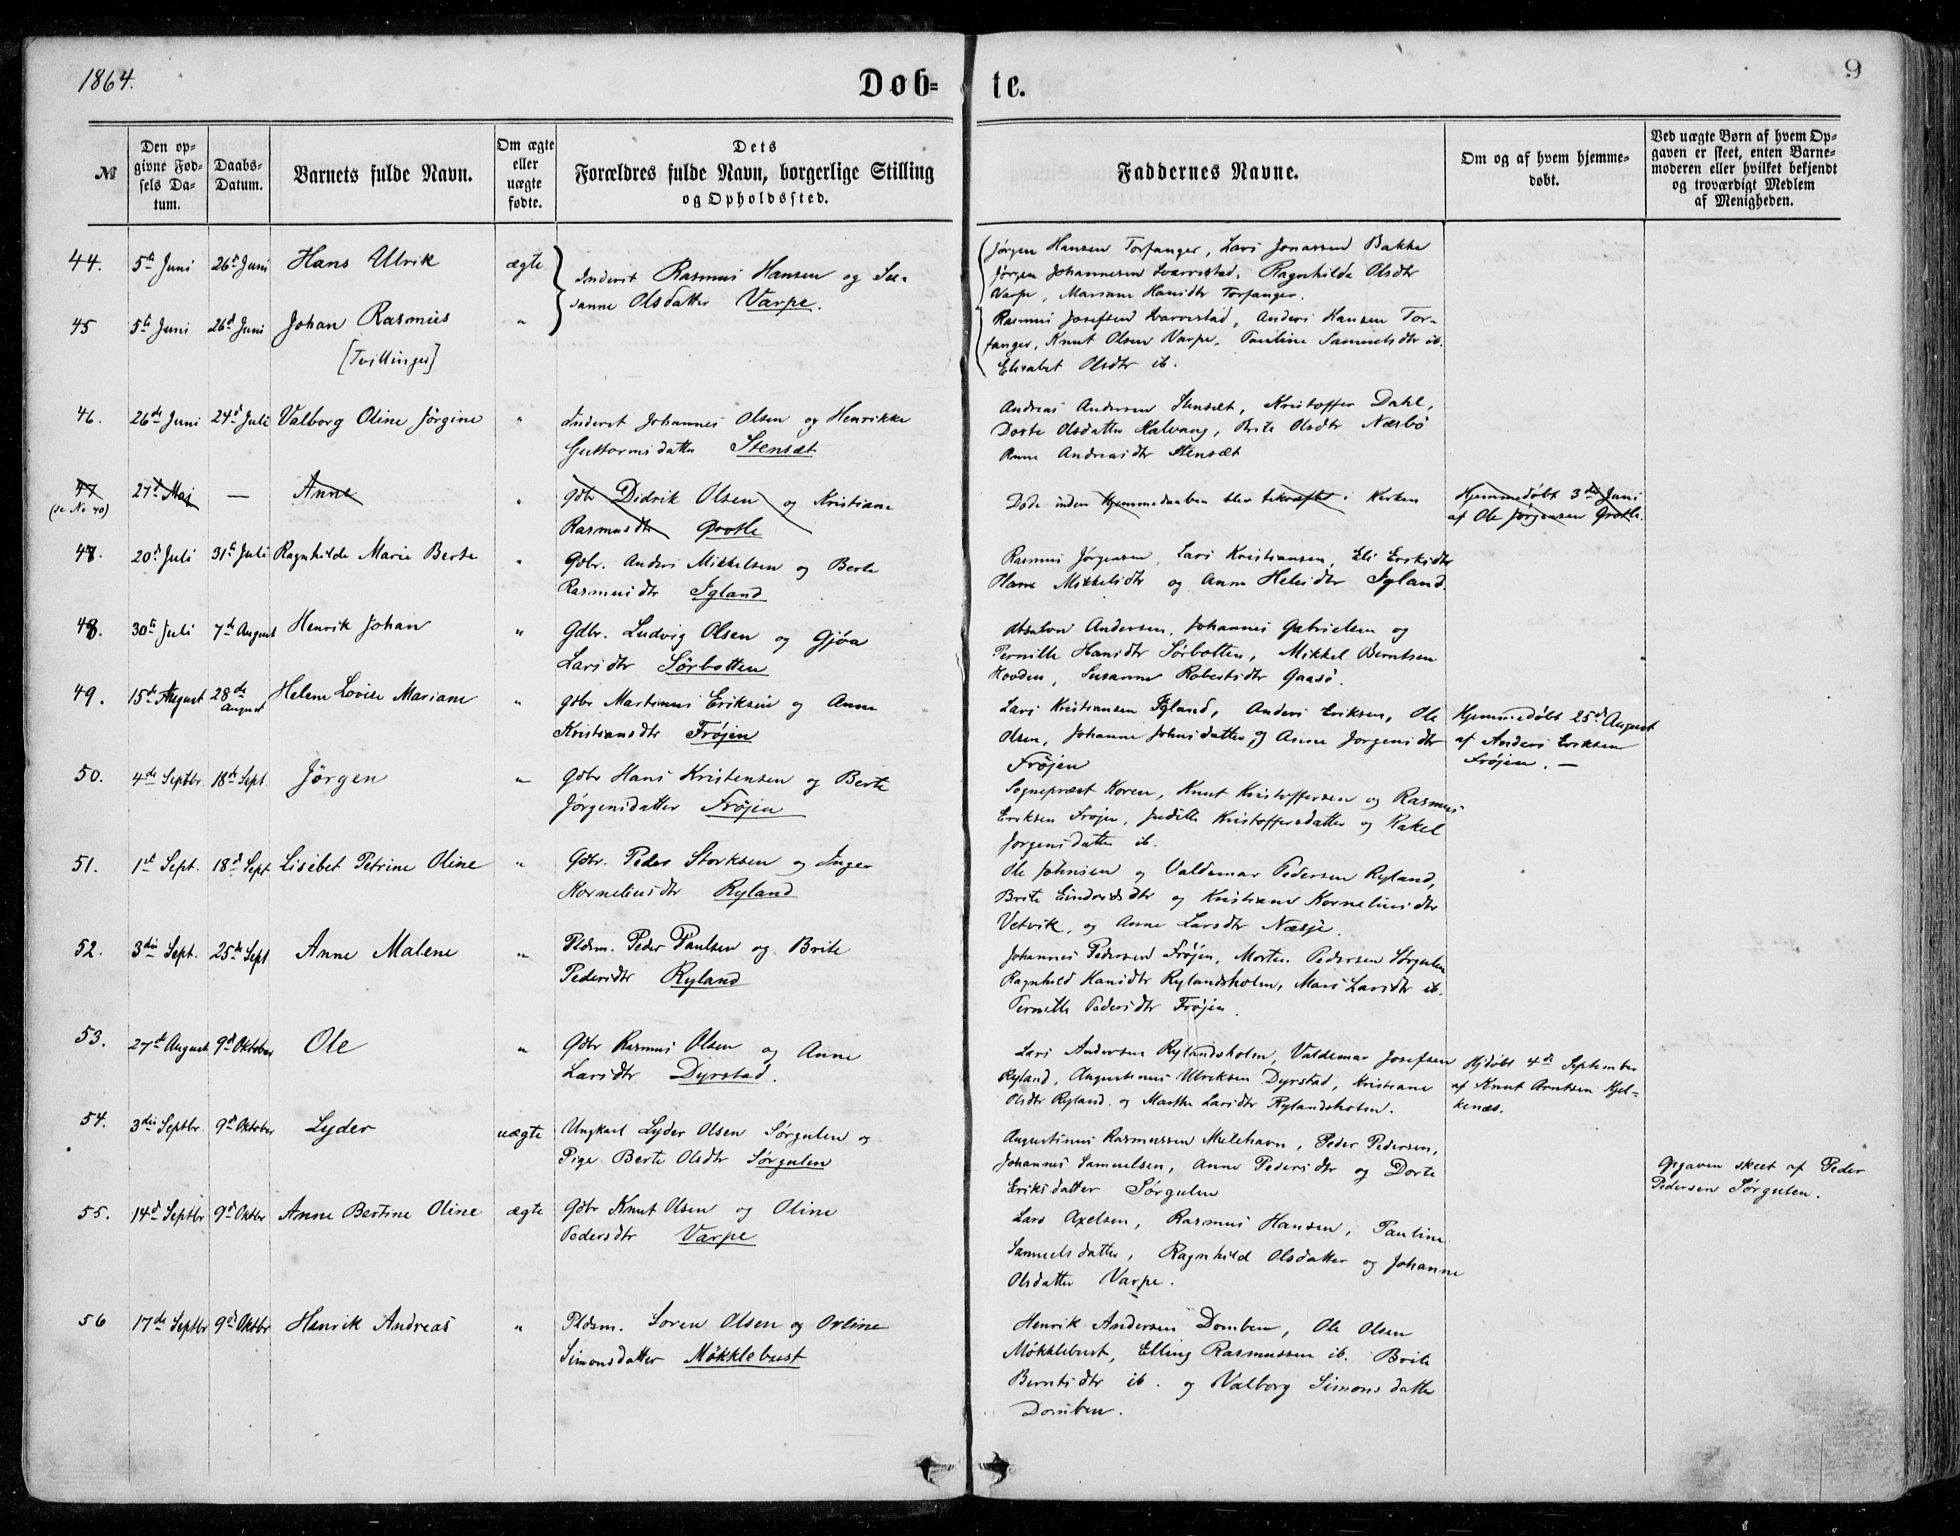 1864.
Døb=
te.
9
№
Den op-
givne Fød-
sels Da-
tum.
Daabs-
Datum.
Barnets fulde Navn.
Om ægte
eller
uægte
fødte.
Dets
Forældres fulde Navn, borgerlige Stilling
og Opholdssted.
Faddernes Navne.
Om og af hvem hjemme-
døbt.
Ved uægte Børn af hvem Op-
gaven er skeet, enten Barne-
moderen eller hvilket bekjendt
og troværdigt Medlem
af Menigheden.
44. 5te Juni 26de Juni Hans Ulrik ægte
Inderst Rasmus Hansen og Su-
sanne Olsdatter Varpe.
Jørgen Hansen Torfanger, Lars Jonassen Bakke
Jørgen Johannesen Svarrestad, Ragnhilde Olsdtr
Varpe, Mariane Hansdtr Torfanger.
45 5te Juni 26de Juni Johan Rasmus "
[Tvillinger]
Rasmus Josefsen Svarrestad, Anders Hansen Tor-
fanger, Knut Olsen Varpe, Pauline Samuelsdtr ib.
Elisabet Olsdtr ib.
46. 26de Juni 24de Juli Valborg Oline Jørgine "
Inderst Johannes Olsen og Henrikke
Guttormsdatter Stensæt
Andreas Andersen Stensæt, Kristoffer Dahl,
Dorte Olsdatter Kalvaag, Brite Olsdtr Næsbø
Anne Andreasdtr Stensæt
47 27de Maj — Anne "
(se No 40)
Gdbr Didrik Olsen og Kristiane
Rasmusdtr Grotle
Døde inden Hjemmedaaben blev bekræftet i Kirken
Hjemmedøbt 3die Juni
af Ole Jørgensen Grotle.
47. 20de Juli 31te Juli Ragnhilde Marie Berte "
Gdbr. Anders Mikkelsen og Berte
Rasmusdtr Igland
Rasmus Jørgensen, Lars Kristiansen, Eli Eriksdtr
Hanne Mikkelsdtr og Anne Helesdtr Igland.
48. 30te Juli 7de August Henrik Johan "
Gdbr. Ludvig Olsen og Gjøa
Larsdtr Sørbotten
Absalon Andersen, Johannes Gabrielsen og
Pernille Hansdtr Sørbotten, Mikkel Berntsen
Hovden, Susanne Robertsdtr Gaasø.
49. 15de August 28de August Helene Lovise Mariane "
Gdbr Martinus Eriksen og Anne
Kristiansdtr Frøjen
Lars Kristiansen Igland, Anders Eriksen, Ole
Olsen, Johanne Johnsdatter og Anne Jørgensdtr
Frøjen
Hjemmedøbt 25de August
af Anders Eriksen
Frøjen. —
50. 4de Septbr. 18de Sept. Jørgen "
Gdbr Hans Kristensen og Berte
Jørgensdatter Frøjen
Sogneprest Koren, Knut Kristoffersen og Rasmus
Eriksen Frøjen, Judithe Kristoffersdatter og Rakel
Jørgensdatter ib.
51. 1ste Sept. 18de Sept Lisebet Petrine Oline "
Gdbr. Peder Storksen og Inger
Korneliusdtr Ryland
Ole Johnsen og Valdemar Pedersen Ryland,
Brite Eindridsdtr og Kristiane Korneliusdtr
Vetvik, og Anne Larsdtr Næsje.
52. 3die Sept. 25de Sept Anne Malene "
Pldsm. Peder Paulsen og Brite
Pedersdtr Ryland
Johannes Pedersen Frøjen, Morten Pedersen Sørgulen
Ragnhild Hansdtr Rylandsholm, Mari Larsdtr ib.
Pernille Pedersdtr Frøjen.
53. 27de August 9de Oktober Ole "
Gdbr Rasmus Olsen og Anne
Larsdtr Dyrstad.
Lars Andersen Rylandsholm, Valdemar Josefsen
Ryland, Augustinus Ulriksen Dyrstad, Kristiane
Olsdtr Ryland og Marthe Larsdtr Rylandsholm.
Hjdøbt 4de September
af Knut Arntsen Hjel-
kenæs.
54. 3die Septbr. 9de Oktober Lyder uægte
Ungkarl Lyder Olsen Sørgulen og
Pige Berte Olsdtr Sørgulen
Augustinus Rasmussen Mulehavn, Peder Pedersen,
Johannes Samuelsen, Anne Pedersdtr og Dorte
Eriksdatter Sørgulen
Opgaven skeet af Peder
Pedersen Sørgulen.
55. 14de Septbr 9de Oktbr Anne Bertine Oline ægte
Gdbr Knut Olsen og Oline
Pedersdtr Varpe
Lars Axelsen, Rasmus Hansen, Pauline
Samuelsdatter, Ragnhild Olsdatter og Johanne
Olsdatter Varpe.
56 17de Septbr 9de Oktbr Henrik Andreas "
Pldsm. Søren Olsen og Ovline
Simonsdatter Møkklebust
Henrik Andersen Domben, Ole Olsen
Møkklebust, Elling Rasmussen ib. Brite
Berntsdtr ib. og Valborg Simonsdatter
Domben.